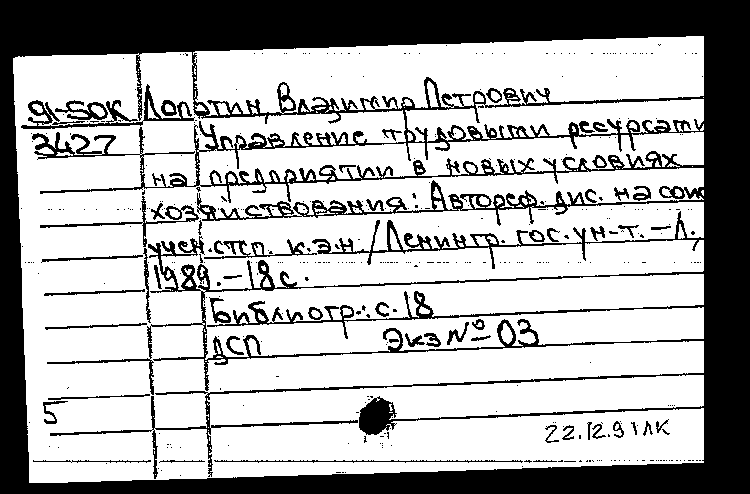 91-50К Лопатин, Владимир Петрович
3427 Управление трудовыми ресурсами
на предприятии в новых условиях
хозяйствования: Автореф. дис. на соис
учен. степ. к.э.н. / Ленингр. гос. ун-т. – Л.,
1989. – 18 с.
Библиогр.: с. 18
ДСП Экз № 03
5
22.12.91 ЛК